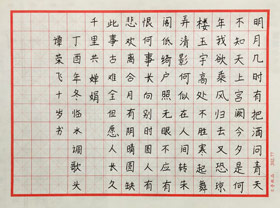 明月几时有把酒问青天
不知天上宫阙今夕是何
年我欲乘风归去又恐琼
楼玉宇高处不胜寒起舞
弄清影何似在人间转朱
阁低绮户照无眠不应有
恨何事长向别时圆人有
悲欢离合月有阴晴圆缺
此事古难全但愿人长久
千里共婵娟
丁酉年冬临水调歌头
谭荣飞十岁书